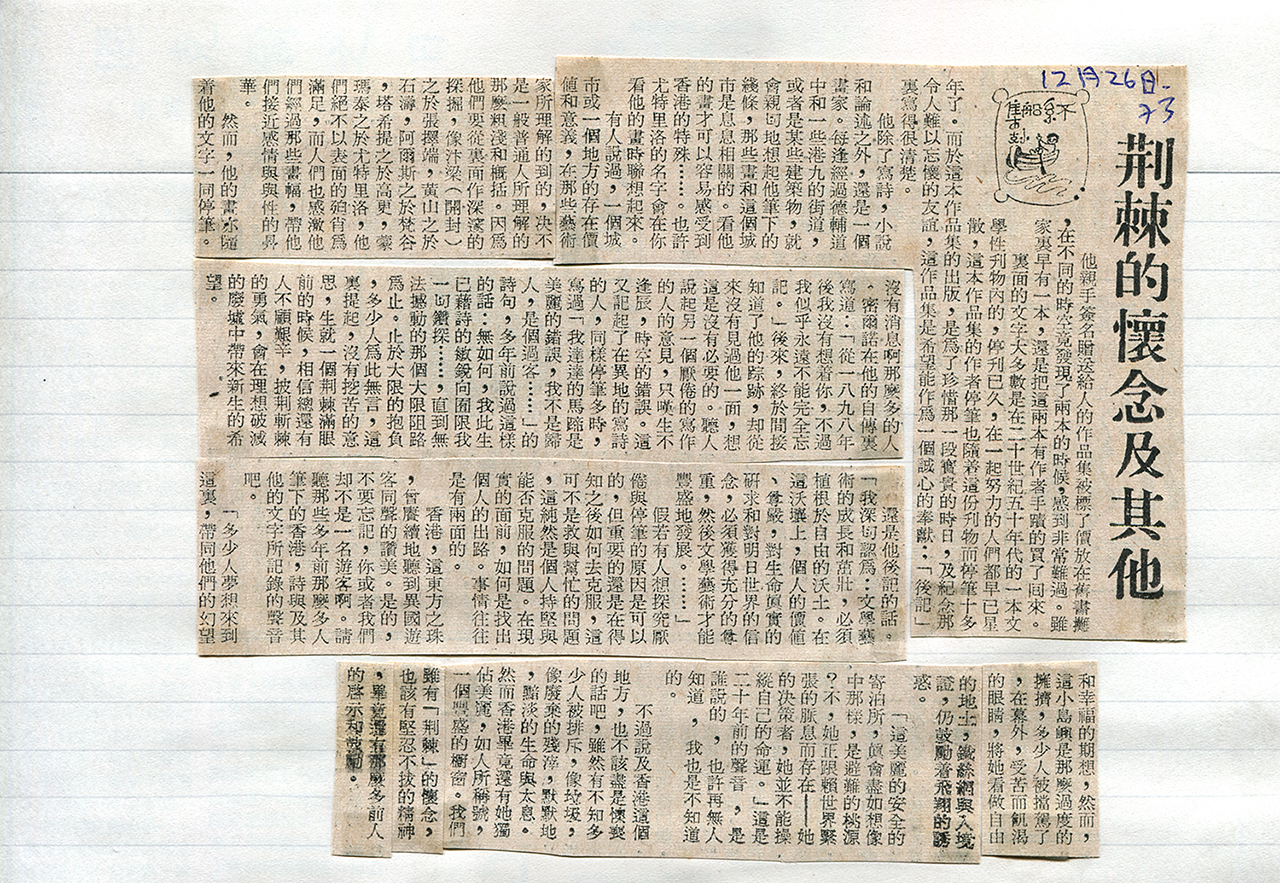 12月26日.
73
荊棘的懷念及其他
他親手簽名贈送給人的作品集被標了價放在舊書攤
，在不同的時空竟發現了兩本的時候，感到非常難過。雖
家裏早有一本，還是把這兩本有作者手蹟的買了囘來。
裏面的文字大多數是在二十世紀五十年代的一本文
學性刊物內的，停刊已久，在一起努力的人們都早已星
散，這本作品集的作者停筆也隨着這份刊物而停筆十多
年了。而於這本作品集的出版，是爲了珍惜那一段寶貴的時日，及紀念那
令人難以忘懷的友誼，這作品集是希望能作爲一個誠心的奉獻：「後記」
裏寫得很清楚。
他除了寫詩，小說
和論述之外，還是一個
畫家。每逢經過德輔道
中和一些港九的街道，
或者是某些建築物，就
會親切地想起他筆下的
綫條，那些畫和這個城
市是息息相關的。看他
的畫才可以容易感受到
香港的特殊……。也許
尤特里洛的名字會在你
看他的畫時聯想起來。
有人說過，一個城
市或一個地方的存在價
値和意義，在那些藝術
家所理解的到的，決不
是一般普通人所理解的
那麽粗淺和概括。因爲
他們要從裏面作深邃的
探掘，像汴梁（開封）
之於張擇端，黃山之於
石濤，阿爾斯之於梵谷
，塔希提之於高更，蒙
瑪泰之於尤特里洛，他
們絕不以表面的殉肖爲
滿足，而人們也感激他
們經過那些畫幅，帶他
們接近感情與與性的昇
華。
然而，他的畫亦隨
着他的文字一同停筆。
沒有消息啊那麽多的人
。密爾諾在他的自傳裏
寫道：「從一八九八年
後我沒有想着你，不過
我似乎永遠不能完全忘
記。」後來，終於間接
知道了他的踪跡，却從
來沒有見過他一面，想
這是沒有必要的。聽人
說起另一個厭倦的寫作
的人的意見，只嘆生不
逢辰，時空的錯誤。這
又記起了在異地的寫詩
的人，同樣停筆多時，
寫過「我達達的馬蹄是
美麗的錯誤，我不是歸
人，是個過客……」的
詩句，多年前說過這樣
的話：無如何，我此生
已藉詩的敏銳向囿限我
一切鑽探……，直到無
法撼動的那個大限阻路
爲止。止於大限的抱負
，多少人爲此無言，這
裏提起，沒有挖苦的意
思，生就一個荆棘滿眼
前的時候，相信總還有
人不顧艱辛，披荆斬棘
的勇氣，會在理想破滅
的廢墟中帶來新生的希
望。
還是他後記的話。
「我深切認爲：文學藝
術的成長和茁壯，必須
植根於自由的沃土。在
這沃壤上，個人的價値
、尊嚴，對生命眞實的
硏求和對明日世界的信
念，必須獲得充分的尊
重，然後文學藝術才能
豐盛地發展。……」
假若有人想探究厭
倦與停筆的原因是可以
的，但重要的還是在得
知之後如何去克服，這
可不是救與幫忙的問題
，這純然是個人持堅與
能否克服的問題。在現
實的面前，如何是找出
個人的出路。事情往往
是有兩面的。
香港，這東方之珠
，曾賡續地聽到異國遊
客同聲的讚美。是的，
不要忘記，你或者我們
却不是一名遊客啊。請
聽那些多年前那麽多人
筆下的香港，詩與及其
他的文字所記錄的聲音
吧。
「多少人夢想來到
這裏，帶同他們的幻望
和幸福的期想，然而，
這小島嶼是那麽過度的
擁擠，多少人被擋駕了
，在幕外，受苦而飢渴
的眼睛，將她看做自由
的地土，鐵絲網與入境
證，仍鼓勵着飛翔的誘
惑。
「這美麗的安全的
寄泊所，眞會盡如想像
中那樣，是避難的桃源
？不，她正跟賴世界緊
張的脈息而存在——她
的決策者，她並不能操
縱自己的命運。」這是
二十年前的聲音，是
誰說的，也許再無人
知道，我也是不知道
的。
不過說及香港這個
地方，也不該盡是懷喪
的話吧，雖然有不知多
少人被排斥，像垃圾，
像廢棄的殘滓，默默地
，黯淡的生命與太息。
然而香港畢竟還有她獨
佔美麗，如人所稱號，
一個豐盛的櫥窗。我們
雖有「荆棘」的懷念，
也該有堅忍不拔的精神
，畢竟還有那麽多前人
的啓示和鼓勵。